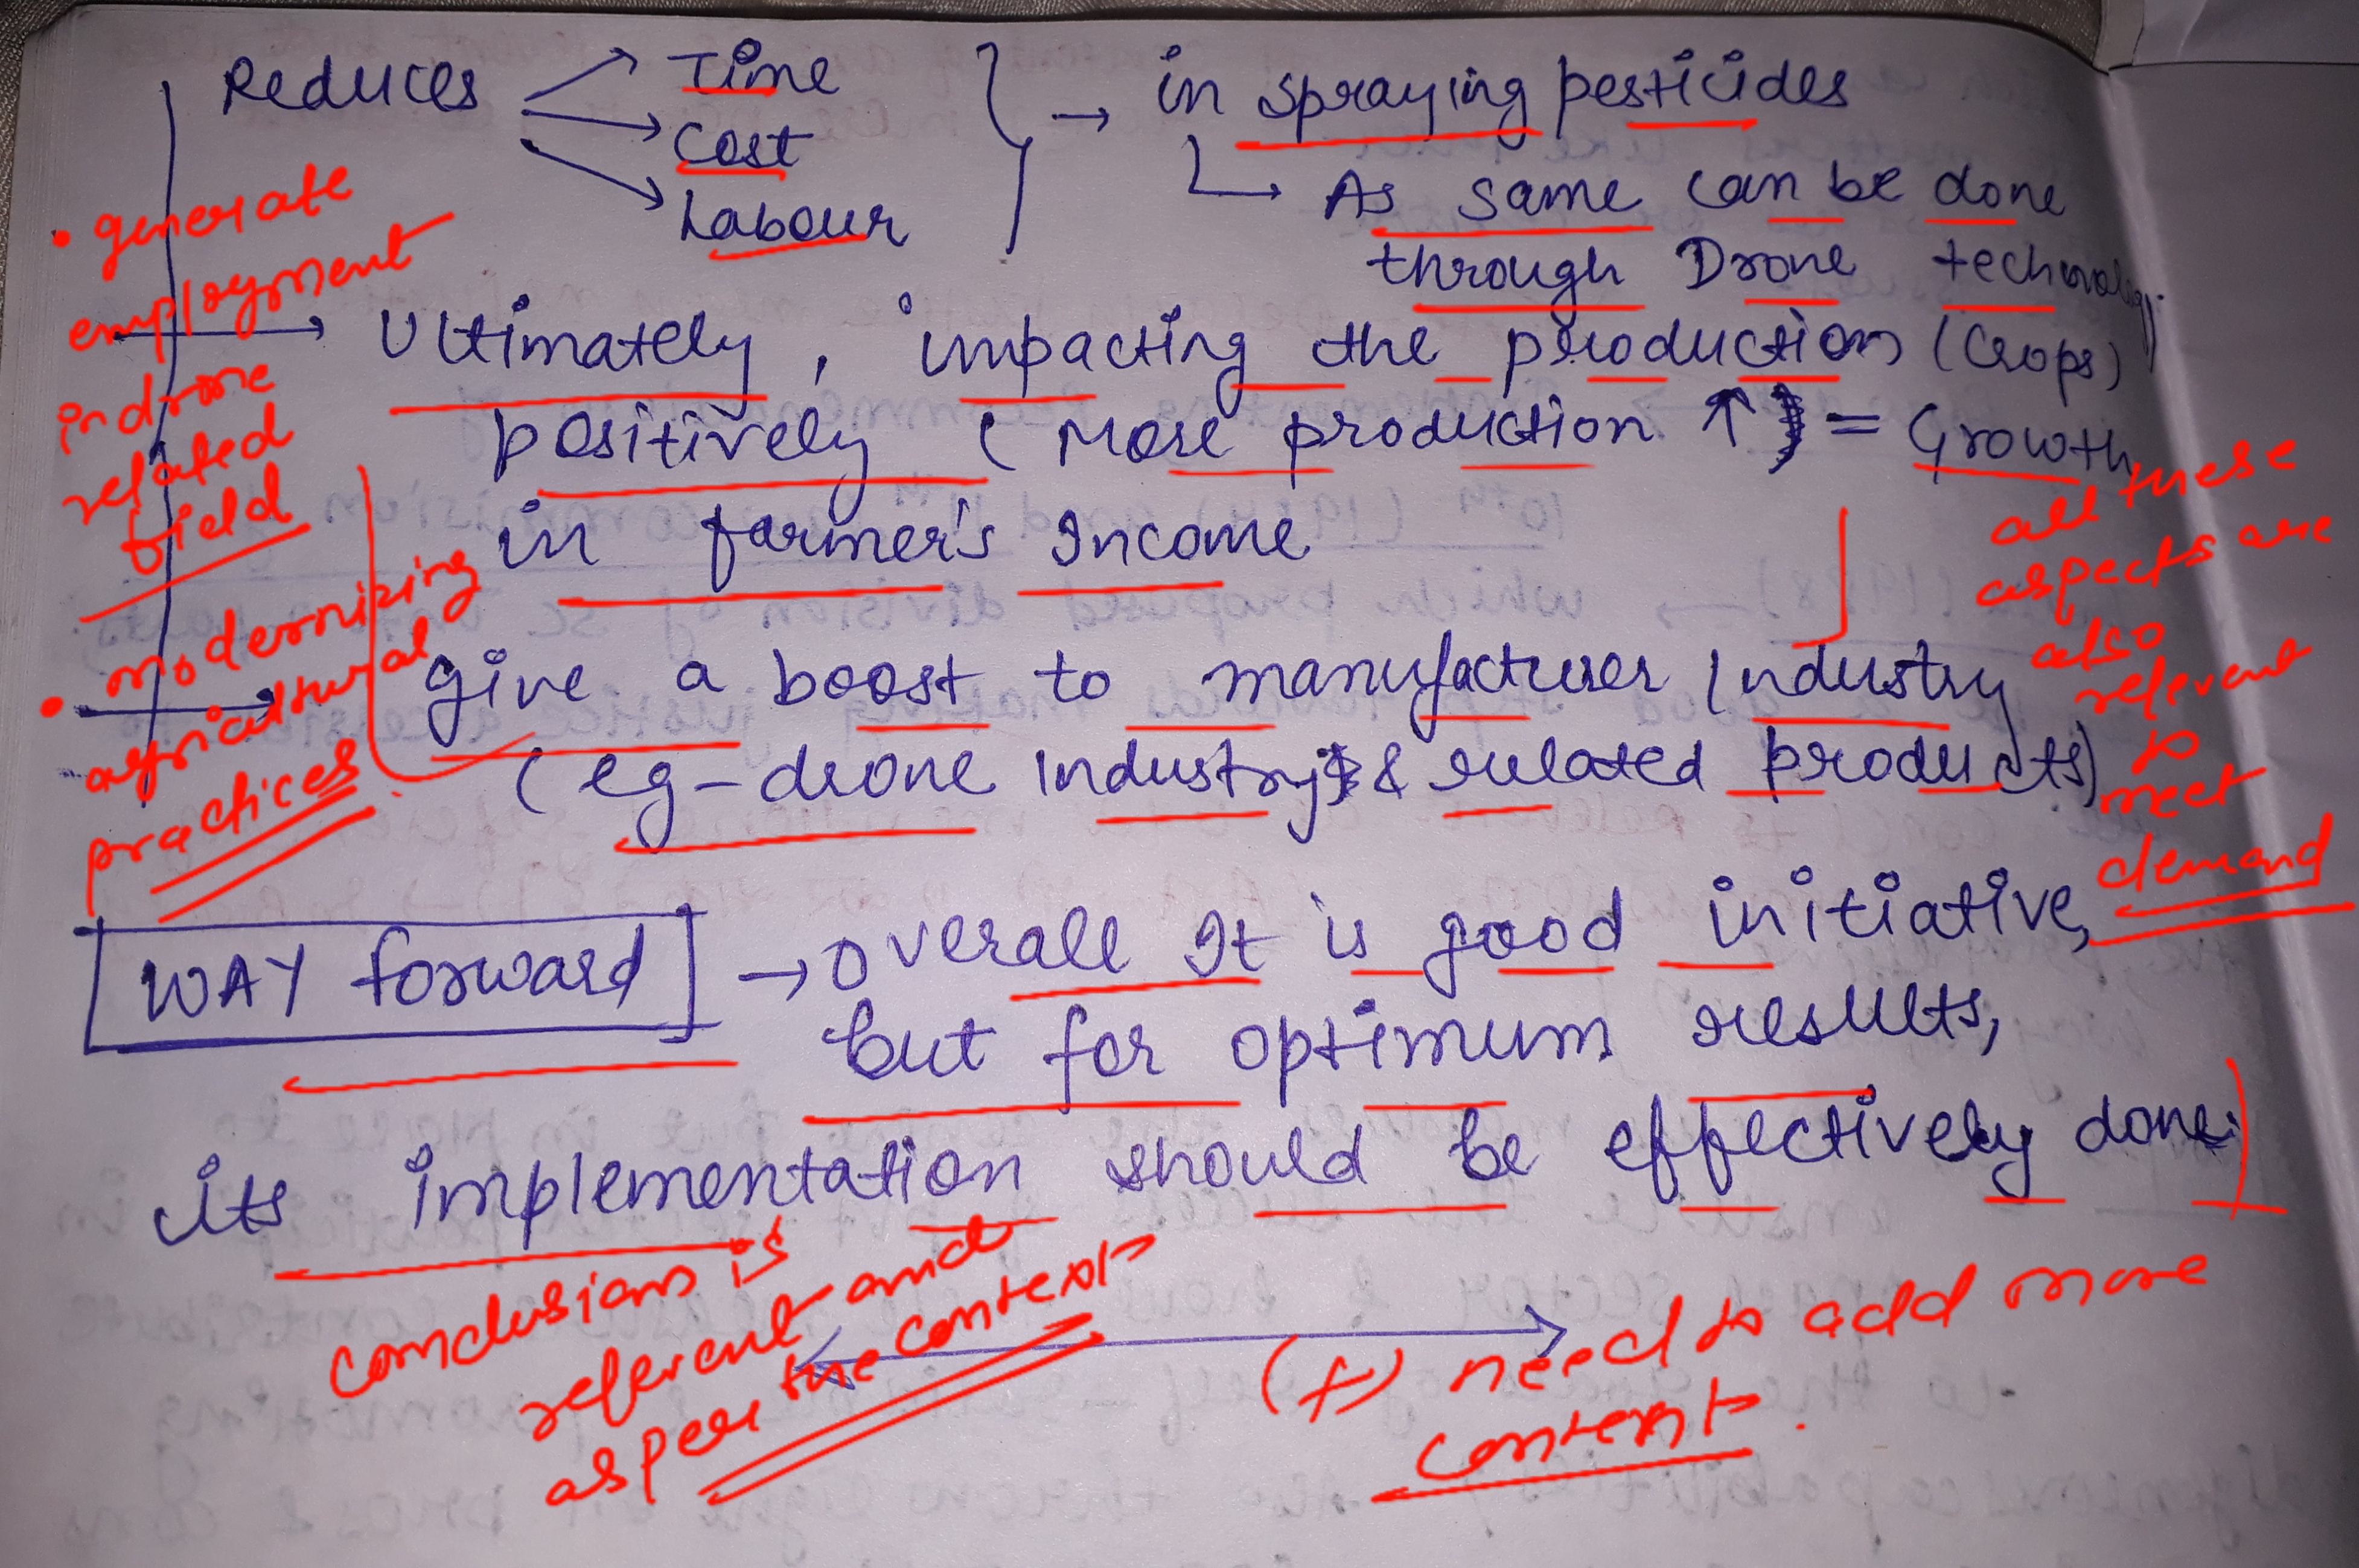 Reduces → Time
→ Cost
→ Labour
} → in spraying pesticides
↳ As same can be done
through Drone technology.
→ Ultimately, impacting the production (Crops)
positively (More production ↑) = Growth
in farmer's Income
→ give a boost to manufacturer Industry
(eg - drone Industry & related products)
[WAY forward] → Overall It is good initiative,
but for optimum results,
its implementation should be effectively done.
• generate
employment
in drone
related
field
• modernizing
agricultural
practices
all these
aspects are
also
relevant
to
meet
demand
conclusion is
referent and
as per the context
(+) need to add more
content.